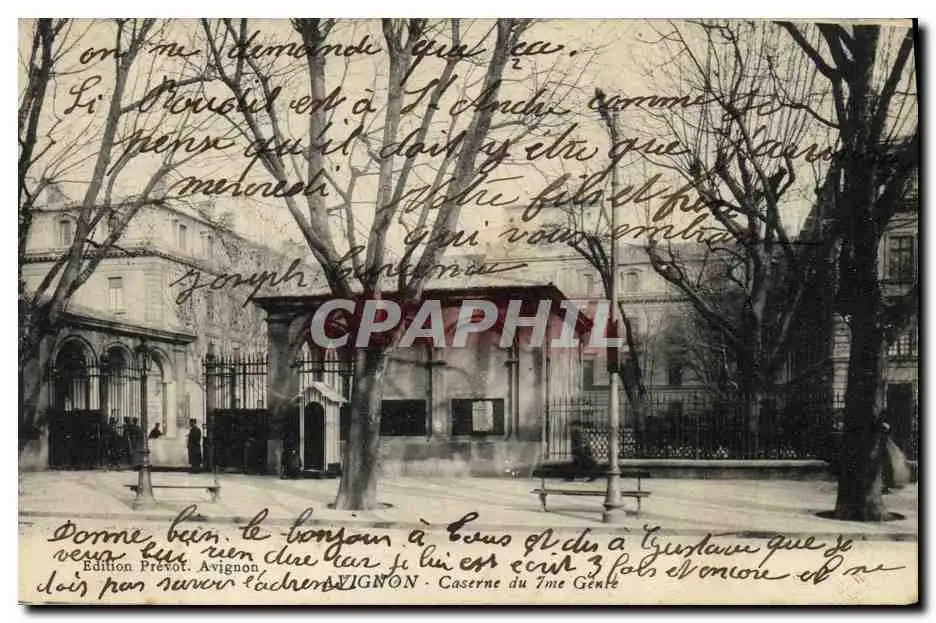 on me demande que ça.
Si Boudul est à St André comme je
pense qu'il doit y être que j'aurai
mercredi Votre fils et frère
qui vous embrasse
Joseph
CPAPHIL
Donne bien le bonjour à tous et dis à Gustave que je
veux lui rien dire car je lui est écrit 3 fois et encore et ne
dois pas savoir l'adresse
Edition Prévot. Avignon
AVIGNON - Caserne du 7me Génie